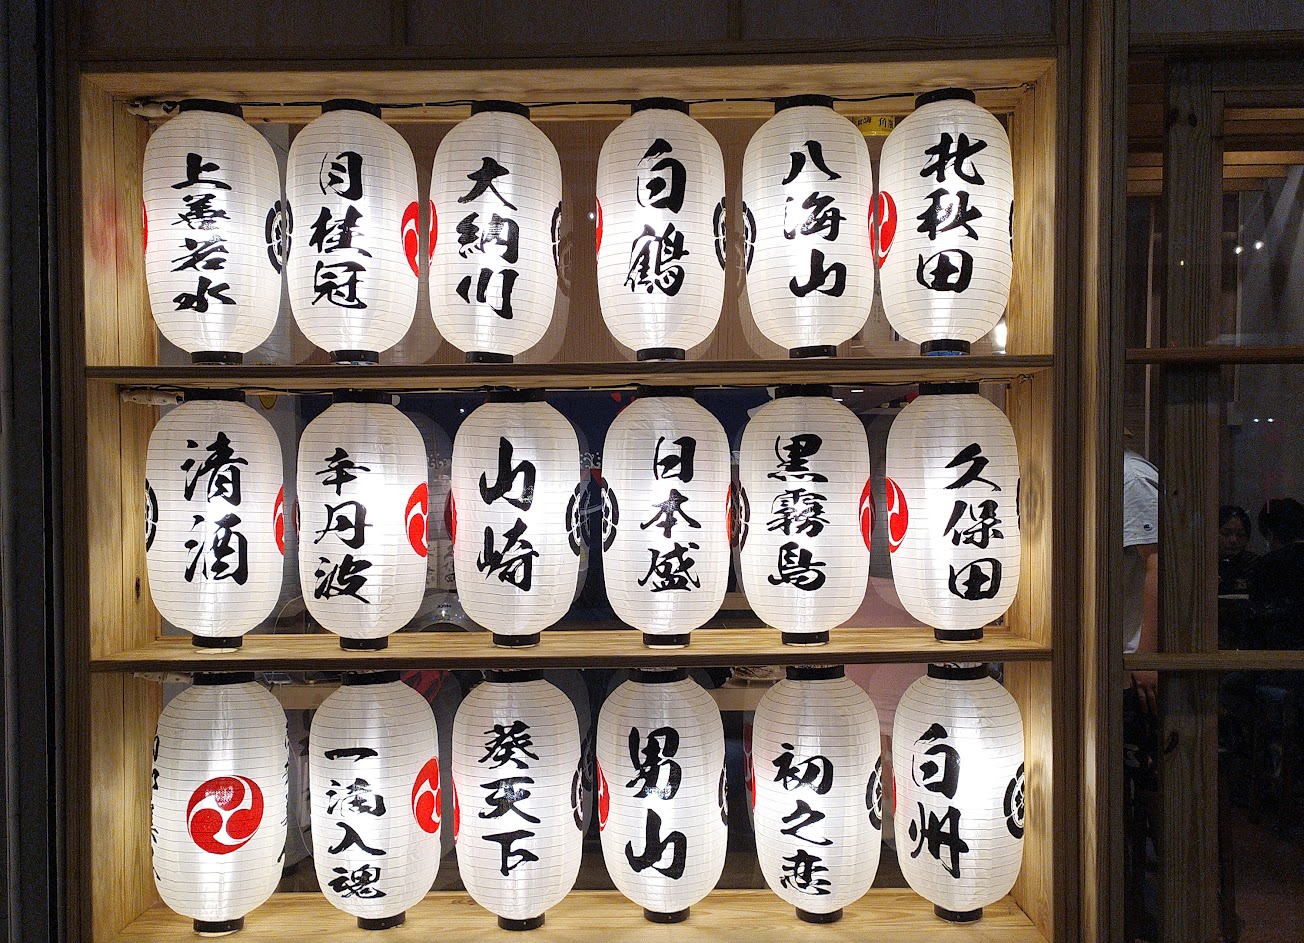 上善若水
月桂冠
大納川
白鶴
八海山
北秋田
清酒
辛丹波
山崎
日本盛
黒霧島
久保田
一滴入魂
葵天下
男山
初之恋
白州